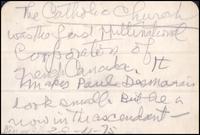 The Catholic Church
was the first Multinational
Corporation of
French Canada. It
makes Paul Desmarais
look small. But be a
now in the ascendant —
20-11-75